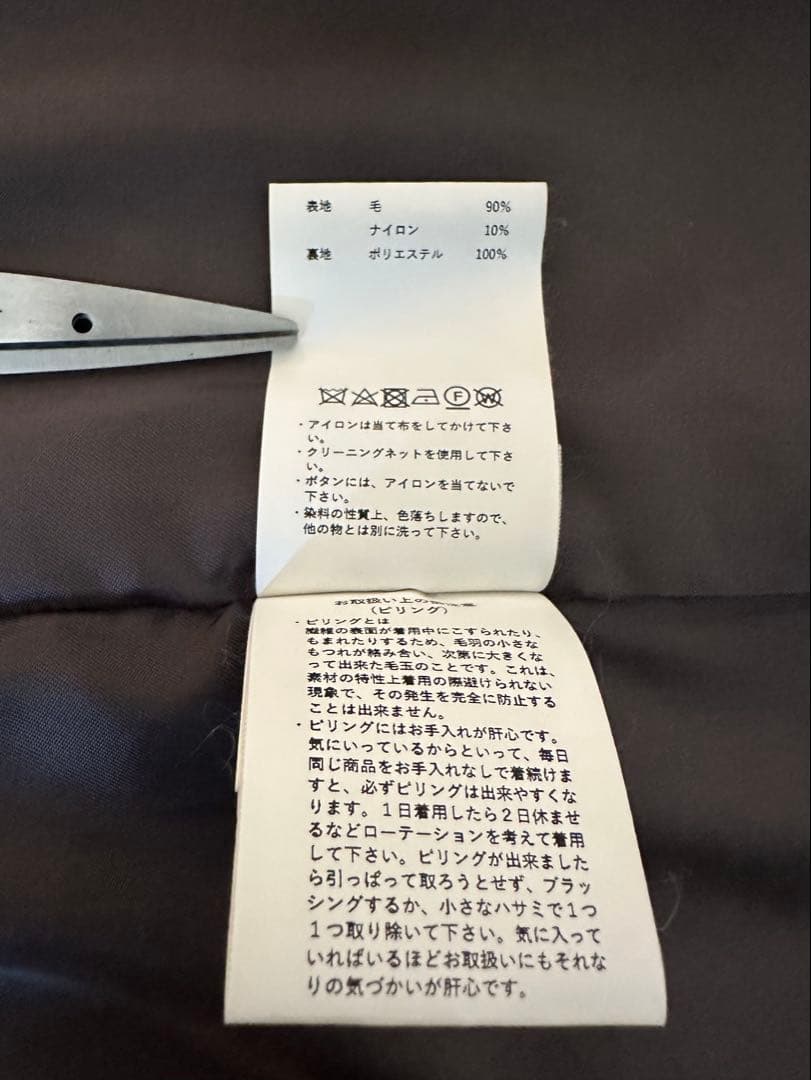 表地 毛 90%
ナイロン 10%
裏地 ポリエステル 100%
F W
・アイロンは当て布をしてかけて下さ
い。
・クリーニングネットを使用して下さ
い。
・ボタンには、アイロンを当てないで
下さい。
・染料の性質上、色落ちしますので、
他の物とは別に洗って下さい。
お取扱い上の
(ピリング)
・ピリングとは
繊維の表面が着用中にこすられたり、
もまれたりするため、毛羽の小さな
もつれが絡み合い、次第に大きくな
って出来た毛玉のことです。これは、
素材の特性上着用の際避けられない
現象で、その発生を完全に防止する
ことは出来ません。
・ピリングにはお手入れが肝心です。
気にいっているからといって、毎日
同じ商品をお手入れなしで着続けま
すと、必ずピリングは出来やすくな
ります。1日着用したら2日休ませ
るなどローテーションを考えて着用
して下さい。ピリングが出来ました
ら引っぱって取ろうとせず、ブラッ
シングするか、小さなハサミで1つ
1つ取り除いて下さい。気に入って
いればいるほどお取扱いにもそれな
りの気づかいが肝心です。